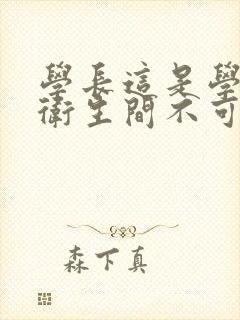 學長這是學
衛生間不可
森下真